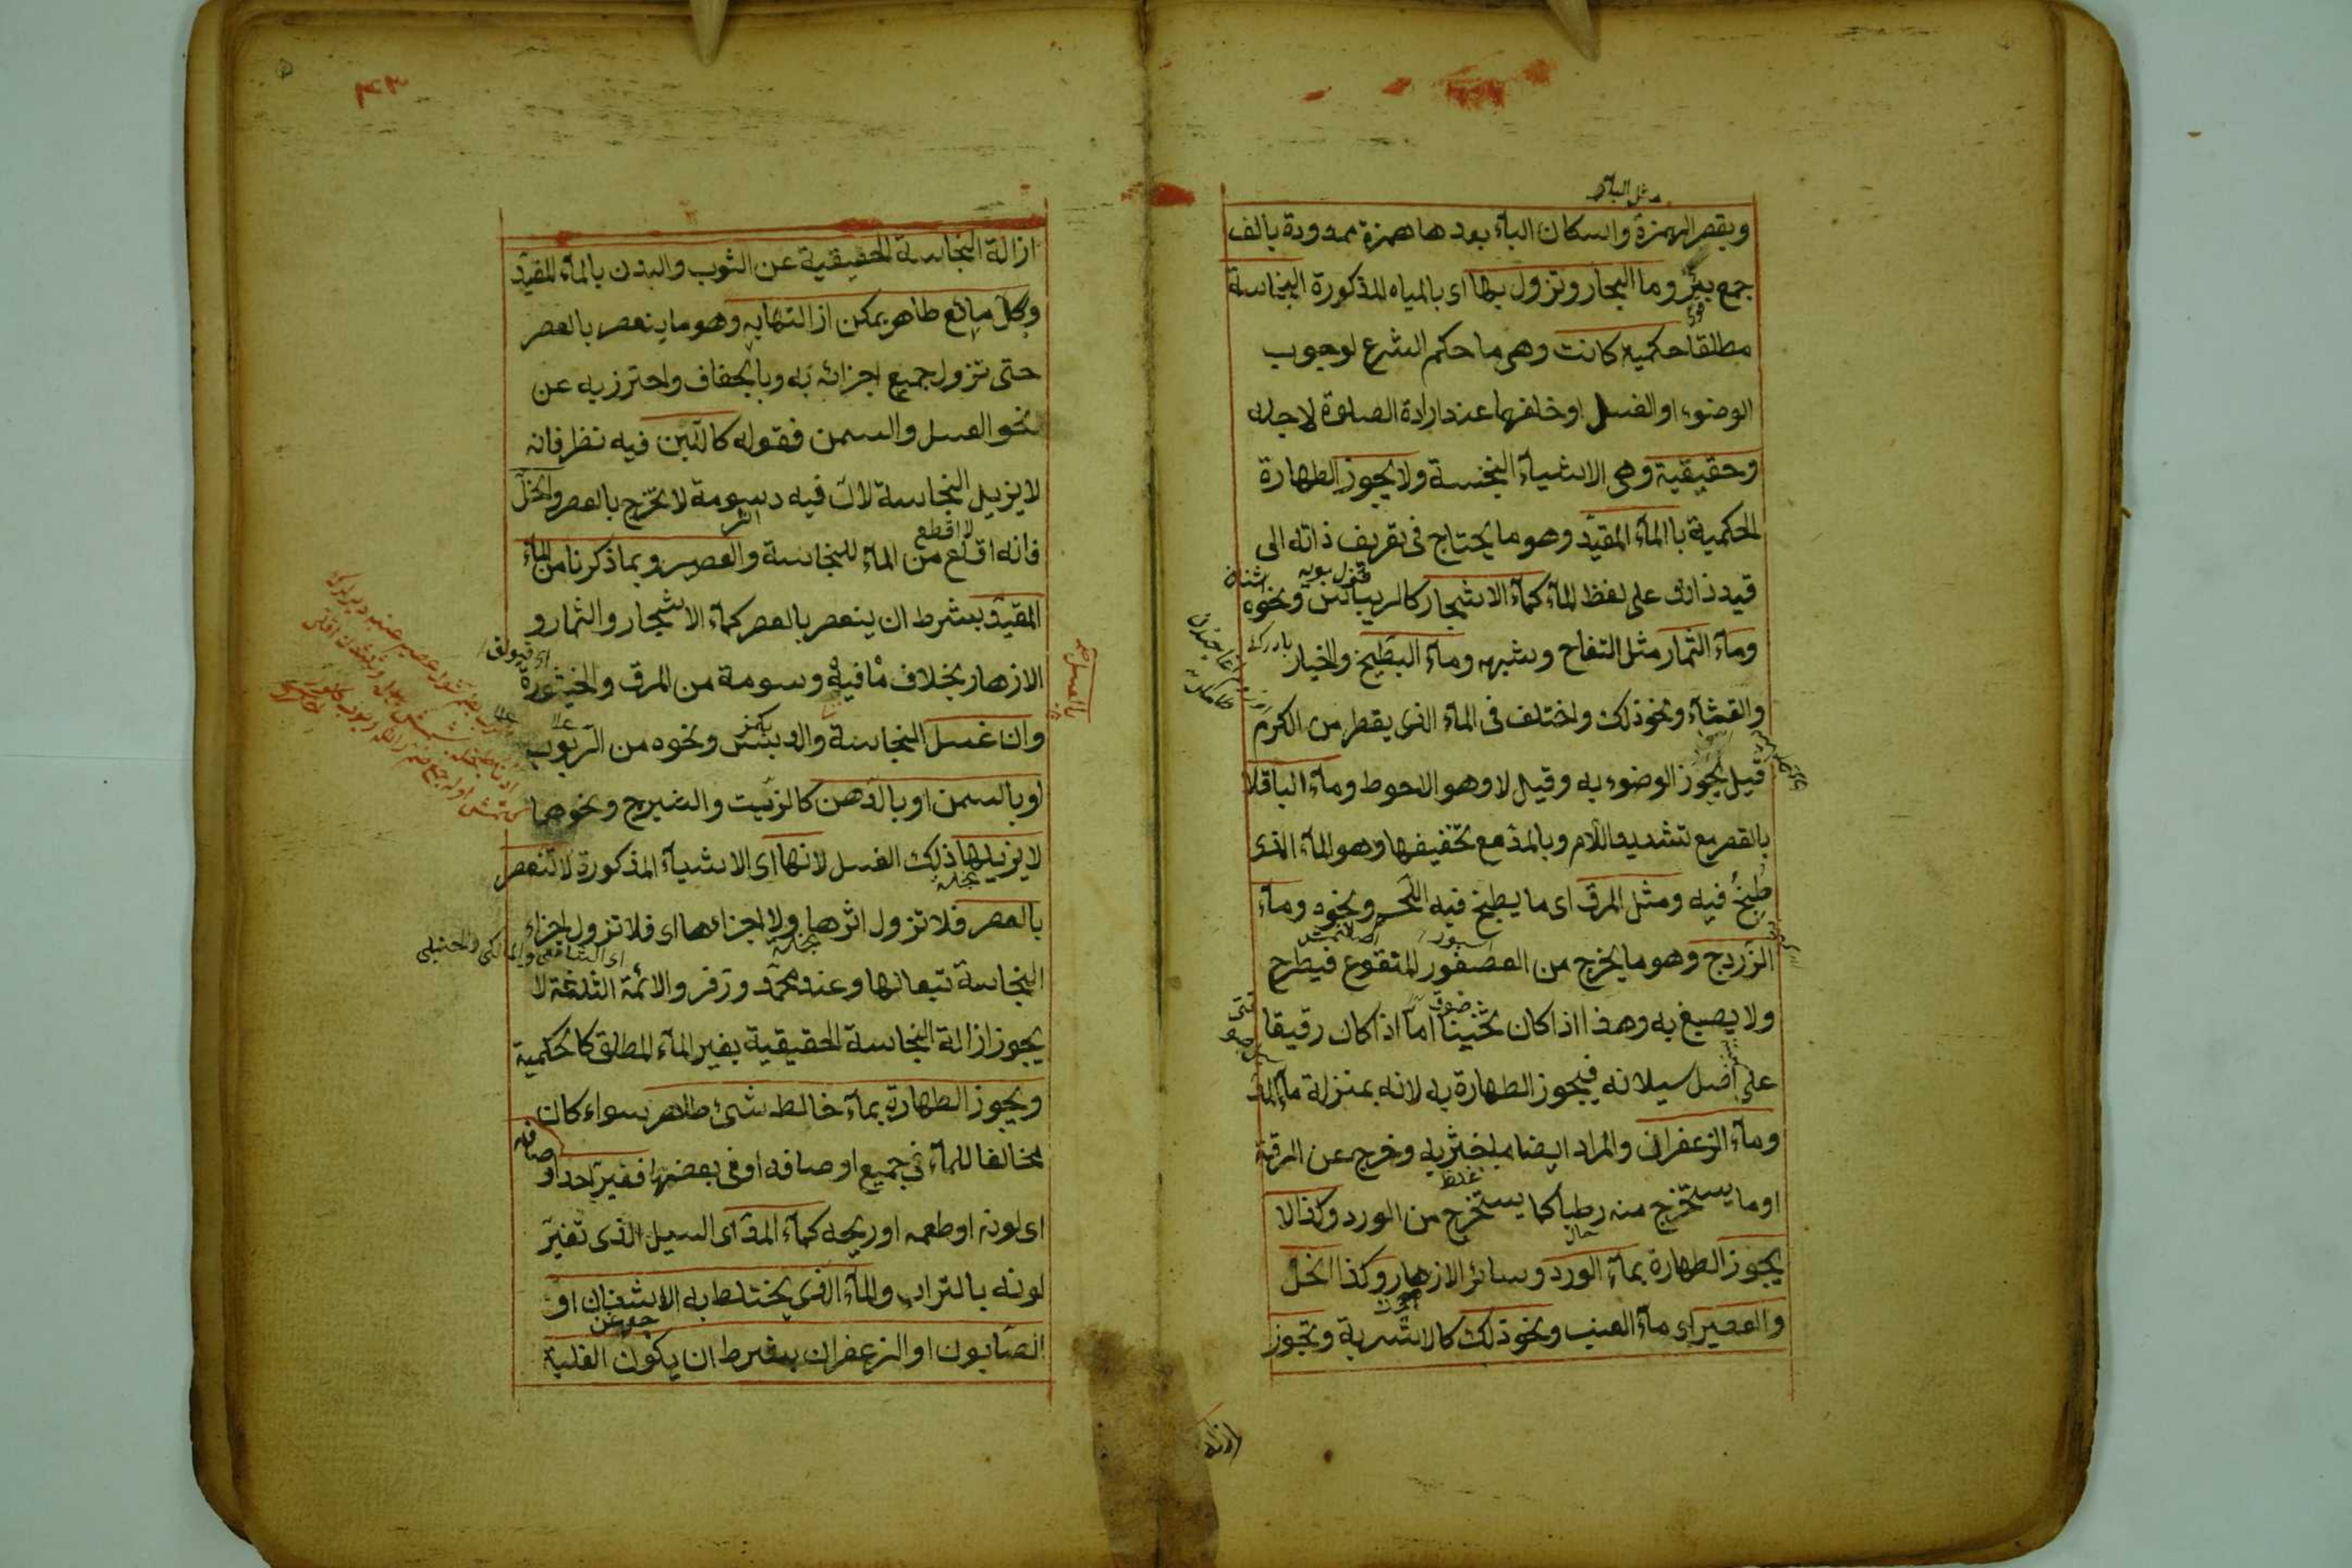 مثل البآر
وبقصر الهمزة واسكان البآء بعدها همزة ممدودة بالف
جمع بئر وما البحار وتزول بها اى بالمياه المذكورة النجاسة
مطلقا حكمية كانت وهى ما حكم الشرع لوجوب
الوضوء او الغسل او خلفهما عند ارادة الصلوة لاجله
وحقيقية وهى الاشيآء النجسة ولا يجوز الطهارة
الحكمية با المآء المقيد وهو ما يحتاج فى تعريف ذاته الى
قيد ذائد على لفظ المآء كمآء الاشجار كالريباس ونحوه
ومآء الثمار مثل التفاح وشبهه ومآء البطيخ والخيار
والقثآء ونحو ذلك واختلف فى المآء الذى يقطر من الكرم
قيل يجوز الوضوء به وقيل لا وهو الاحوط ومآء الباقلا
بالقصر مع تشديد اللام وبالمد مع تخفيفها وهو المآء الذى
طبخ فيه ومثل المرق اى ما يطبخ فيه اللحم ونحوه ومآء
الزردج وهو ما يخرج من العصفور المنقوع فيطرح
ولا يصبغ به وهذا اذا كان ثخينا اما اذا كان رقيقا
على اصل سيلانه فيجوز الطهارة به لانه بمنزلة مآء المد
ومآء الزعفران والمراد ايضا ما خثر به وخرج عن الرقة
او ما يستخرج منه رطبا كما يستخرج من الورد وكذا لا
يجوز الطهارة بمآء الورد وسائر الازهار وكذا الخل
والعصير اى مآء العنب ونحو ذلك كالاشربة وتجوز
ازالة
٤٣
ازالة النجاسة الحقيقية عن الثوب والبدن بالمآء المقيد
وبكل مائع طاهر يمكن ازالتها به وهو ما ينعصر بالعصر
حتى تزول جميع اجزائه به وبالجفاف واحترز به عن
نحو العسل والسمن فقوله كاللبن فيه نظر فانه
لا يزيل النجاسة لان فيه دسومة لا تخرج بالعصر والخل
فانه اقلع من المآء للنجاسة والعصير وبما ذكرنا من المآء
المقيد بشرط ان ينعصر بالعصر كمآء الاشجار والثمار و
الازهار بخلاف ما فيه دسومة من المرق والخيثورة
وان غسل النجاسة والدبس ونحوه من الربوب
او بالسمن او بالدهن كالزيت والشيرج ونحوهما
لا يزيلها ذلك الغسل لانها اى الاشيآء المذكورة لا تنعصر
بالعصر فلا تزول اثرها ولا اجزاءها اى فلا تزول اجزاء
اى الشافعى والمالكى والحنبلى
النجاسة تبعا لها وعند محمد وزفر والائمة الثلثة لا
يجوز ازالة النجاسة الحقيقية بغير المآء المطلق كالحكمية
ويجوز الطهارة بمآء خالط شئ طاهر سواء كان
مخالفا للمآء فى جميع اوصافه او فى بعضها فغير احد اوصافه
اى لونه او طعمه او ريحه كمآء المد اى السيل الذى تغير
لونه بالتراب والمآء الذى يختلط به الاشنان او
الصابون او الزعفران بشرط ان يكون الغلبة